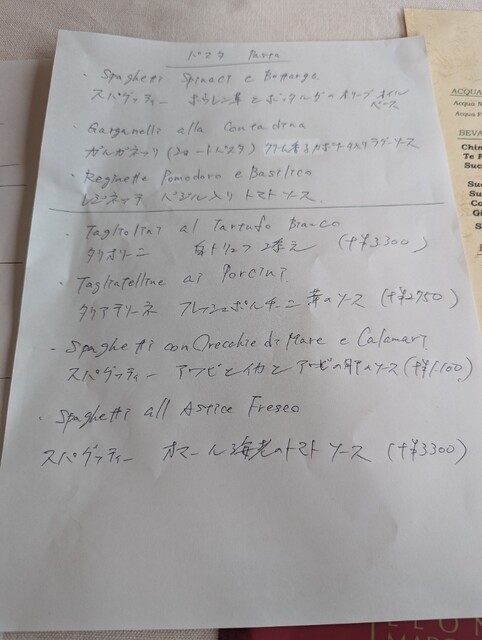 パスタ Pasta
・Spaghetti Spinaci e Bottarga
スパゲッティー ほうレン草とボッタルガのオリーブオイルベース
・Garganelli alla Contadina
ガルガネッリ(ショートパスタ) 入りラグーソース
・Reginette Pomodoro e Basilico
レジネッテ バジル入りトマトソース
・Tagliolini al Tartufo Bianco
タリオリーニ 白トリュフ添え (+¥3300)
・Tagliatelline ai Porcini
タリアテリーネ フレッシュポルチーニ茸のソース (+¥2750)
・Spaghetti con Orecchie di Mare e Calamari
スパゲッティー アワビとイカとアワビの肝のソース (+¥1,100)
・Spaghetti all Astice Fresco
スパゲッティー オマール海老のトマトソース (+¥3300)
ACQUA
Acqua N
Acqua F
BEVA
Chin
Te F
Suc
Suc
Su
Co
Gi
S